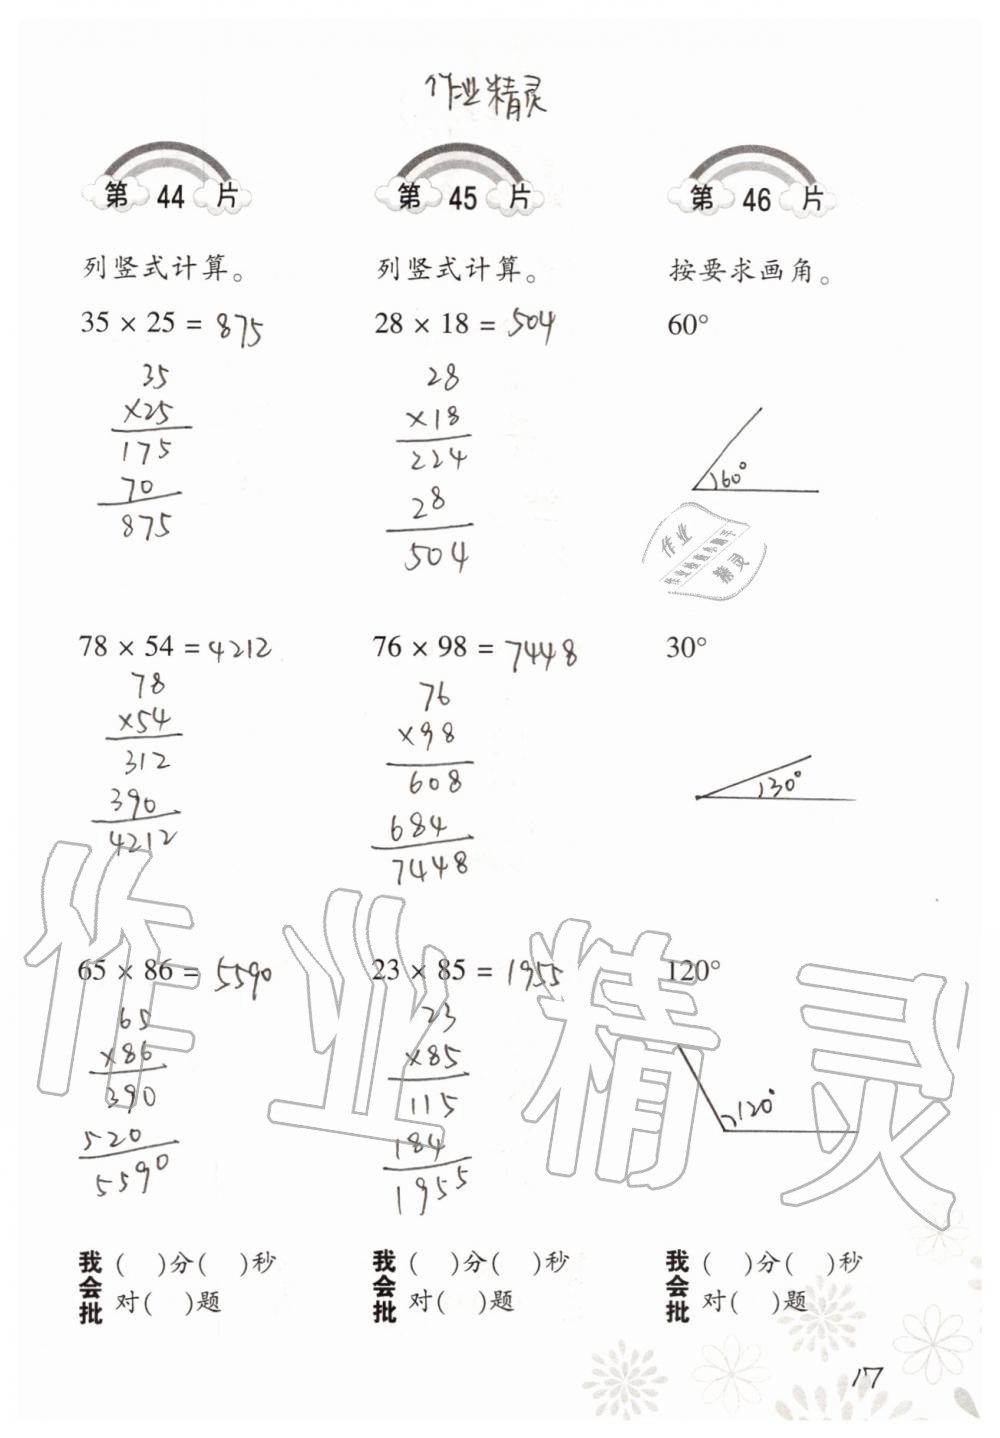 作业精灵
第 44 片
列竖式计算。
35 × 25 = 875
35
×25
175
70
875
78 × 54 = 4212
78
×54
312
390
4212
65 × 86 = 5590
65
×86
390
520
5590
我会批
(  )分(  )秒
对(  )题
第 45 片
列竖式计算。
28 × 18 = 504
28
×18
224
28
504
76 × 98 = 7448
76
×98
608
684
7448
23 × 85 = 1955
23
×85
115
184
1955
我会批
(  )分(  )秒
对(  )题
第 46 片
按要求画角。
60°
60°
作业
作业检查小助手
精灵
30°
30°
120°
120°
我会批
(  )分(  )秒
对(  )题
作业精灵
17